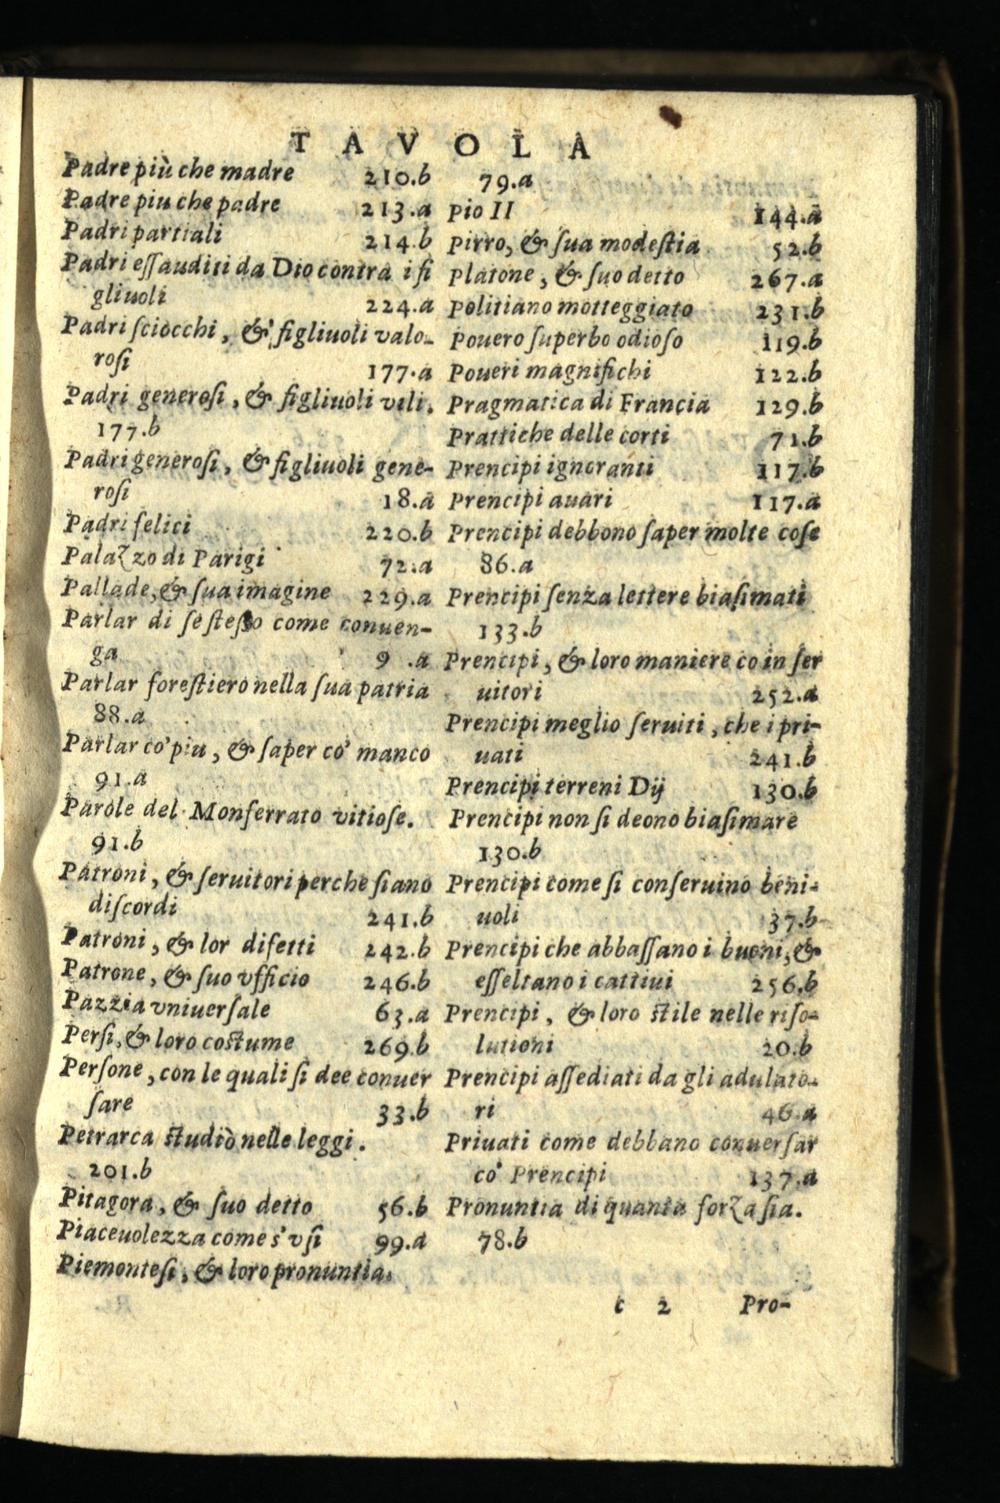 TAVOLA
Padre più che madre 210.b
Padre piu che padre 213.a
Padri partiali 214.b
Padri eſſauditi da Dio contra i fi
gliuoli 224.a
Padri ſciocchi, & figliuoli valo-
roſi 177.a
Padri generoſi, & figliuoli vili.
177.b
Padri generoſi, & figliuoli gene-
roſi 18.a
Padri felici 220.b
Palazzo di Parigi 72.a
Pallade, & ſua imagine 229.a
Parlar di ſe ſteſſo come conuen-
ga 9.a
Parlar foreſtiero nella ſua patria
88.a
Parlar co' piu, & ſaper co' manco
91.a
Parole del Monferrato vitioſe.
91.b
Patroni, & ſeruitori perche ſiano
diſcordi 241.b
Patroni, & lor difetti 242.b
Patrone, & ſuo vfficio 246.b
Pazzia vniuerſale 63.a
Perſi, & loro coſtume 269.b
Perſone, con le quali ſi dee conuer
ſare 33.b
Petrarca ſtudiò nelle leggi.
201.b
Pitagora, & ſuo detto 56.b
Piaceuolezza come s'vſi 99.a
Piemonteſi, & loro pronuntia.
79.a
Pio II 144.a
Pirro, & ſua modeſtia 52.b
Platone, & ſuo detto 267.a
Politiano motteggiato 231.b
Pouero ſuperbo odioſo 119.b
Poueri magnifichi 122.b
Pragmatica di Francia 129.b
Prattiche delle corti 71.b
Prencipi ignoranti 117.b
Prencipi auari 117.a
Prencipi debbono ſaper molte coſe
86.a
Prencipi ſenza lettere biaſimati
133.b
Prencipi, & loro maniere co in ſer
uitori 252.a
Prencipi meglio ſeruiti, che i pri-
uati 241.b
Prencipi terreni Dij 130.b
Prencipi non ſi deono biaſimare
130.b
Prencipi come ſi conſeruino beni-
uoli 37.b
Prencipi che abbaſſano i buoni, &
eſſeltano i cattiui 256.b
Prencipi, & loro ſtile nelle riſo-
lutioni 20.b
Prencipi aſſediati da gli adulato-
ri 46.a
Priuati come debbano conuerſar
co' Prencipi 137.a
Pronuntia di quanta forza ſia.
78.b
c 2 Pro-